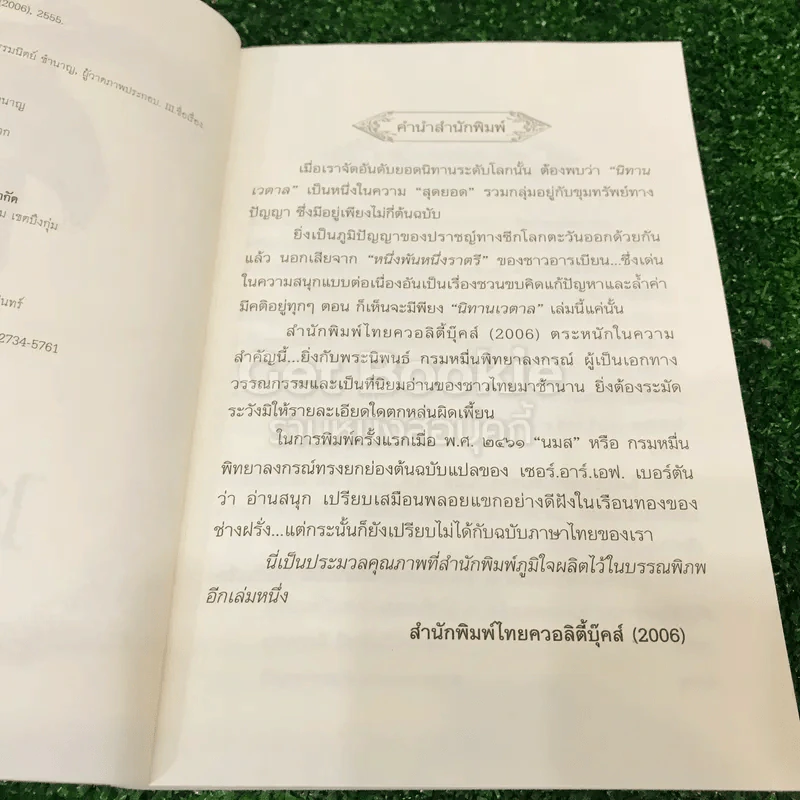 (2006), 2555.
รมนิตย์ ชำนาญ, ผู้วาดภาพประกอบ. III.ชื่อเรื่อง
เขตบึงกุ่ม
2734-5761
คำนำสำนักพิมพ์
เมื่อเราจัดอันดับยอดนิทานระดับโลกนั้น ต้องพบว่า “นิทาน
เวตาล” เป็นหนึ่งในความ “สุดยอด” รวมกลุ่มอยู่กับขุมทรัพย์ทาง
ปัญญา ซึ่งมีอยู่เพียงไม่กี่ต้นฉบับ
ยิ่งเป็นภูมิปัญญาของปราชญ์ทางซีกโลกตะวันออกด้วยกัน
แล้ว นอกเสียจาก “หนึ่งพันหนึ่งราตรี” ของชาวอารเบียน...ซึ่งเด่น
ในความสนุกแบบต่อเนื่องอันเป็นเรื่องชวนขบคิดแก้ปัญหาและล้ำค่า
มีคติอยู่ทุกๆ ตอน ก็เห็นจะมีพียง “นิทานเวตาล” เล่มนี้แค่นั้น
สำนักพิมพ์ไทยควอลิตี้บุ๊คส์ (2006) ตระหนักในความ
สำคัญนี้...ยิ่งกับพระนิพนธ์ กรมหมื่นพิทยาลงกรณ์ ผู้เป็นเอกทาง
วรรณกรรมและเป็นที่นิยมอ่านของชาวไทยมาช้านาน ยิ่งต้องระมัด
ระวังมิให้รายละเอียดใดตกหล่นผิดเพี้ยน
Get Bookie
ร้านหนังสือบุ๊คกี้
ในการพิมพ์ครั้งแรกเมื่อ พ.ศ. ๒๔๖๑ “นมส” หรือ กรมหมื่น
พิทยาลงกรณ์ทรงยกย่องต้นฉบับแปลของ เซอร์.อาร์.เอฟ. เบอร์ตัน
ว่า อ่านสนุก เปรียบเสมือนพลอยแขกอย่างดีฝังในเรือนทองของ
ช่างฝรั่ง...แต่กระนั้นก็ยังเปรียบไม่ได้กับฉบับภาษาไทยของเรา
นี่เป็นประมวลคุณภาพที่สำนักพิมพ์ภูมิใจผลิตไว้ในบรรณพิภพ
อีกเล่มหนึ่ง
สำนักพิมพ์ไทยควอลิตี้บุ๊คส์ (2006)